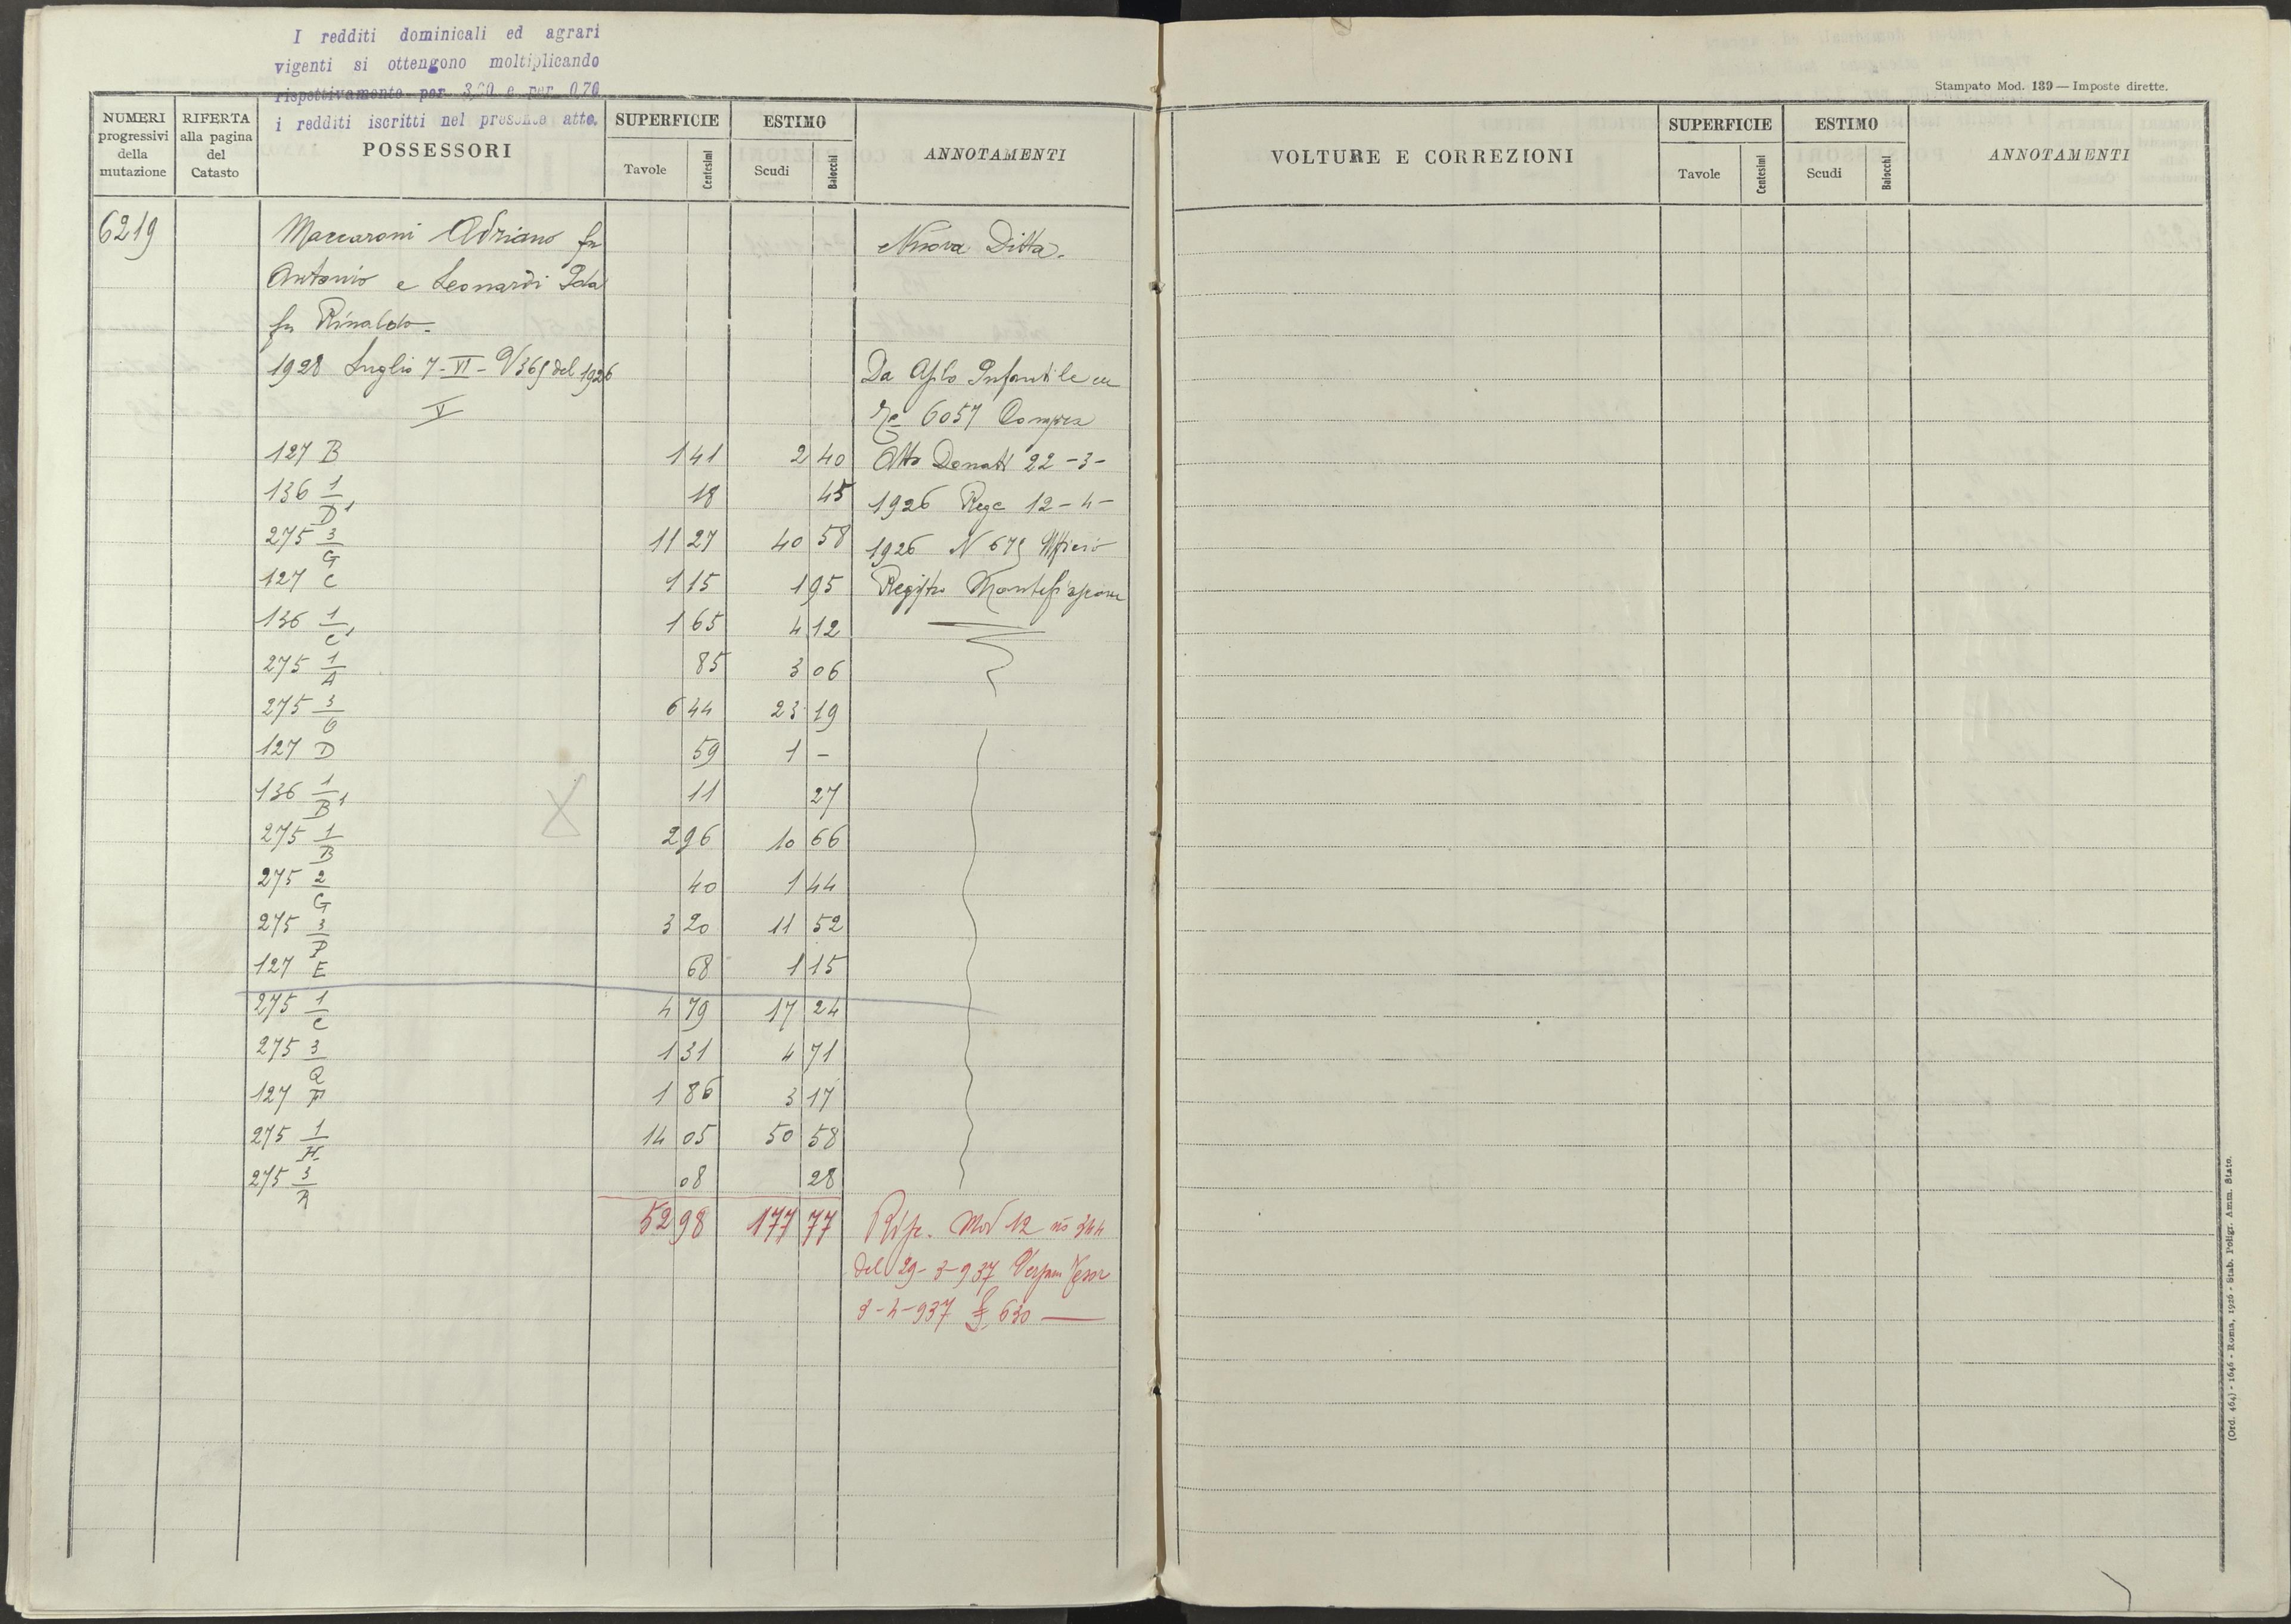 I redditi dominicali ed agrari
vigenti si ottengono moltiplicando
rispettivamente per 3,60 e per 0,70
i redditi iscritti nel presente atto.
NUMERI progressivi della mutazione
RIFERTA alla pagina del Catasto
POSSESSORI
SUPERFICIE
Tavole Centesimi
ESTIMO
Scudi Baiocchi
ANNOTAMENTI
6219 Maccaroni Adriano fu Nuova Ditta.
Antonio e Leonardi Ida
fu Rinaldo.
1928 Luglio 7-VI-V369 del 1926 Da Asilo Infantile in
V 6057 Compra
127 B 1 41 2 40 Atto Donati 22-3-
136 1/D' 18 45 1926 Rege 12-4-
275 3/G 11 27 40 58 1926 N 679 Ufficio
127 C 1 15 1 95 Registro Montefiascone
136 1/C' 1 65 4 12
275 1/A 85 3 06
275 3/O 6 44 23 19
127 D 59 1 -
136 1/B' 11 27
275 1/B 2 96 10 66
275 2/G 40 1 44
275 3/P 3 20 11 52
127 E 68 1 15
275 1/C 4 79 17 24
275 3/Q 1 31 4 71
127 F 1 86 3 17
275 1/H 14 05 50 58
275 3/R 08 28
52 98 177 77 Risc. Mod 12 no 344
del 29-3-937 Versam Tesor
8-4-937 £ 630
Stampato Mod. 139 — Imposte dirette.
VOLTURE E CORREZIONI
SUPERFICIE
Tavole Centesimi
ESTIMO
Scudi Baiocchi
ANNOTAMENTI
(Ord. 464) - 1646 - Roma, 1926 - Stab. Poligr. Amm. Stato.